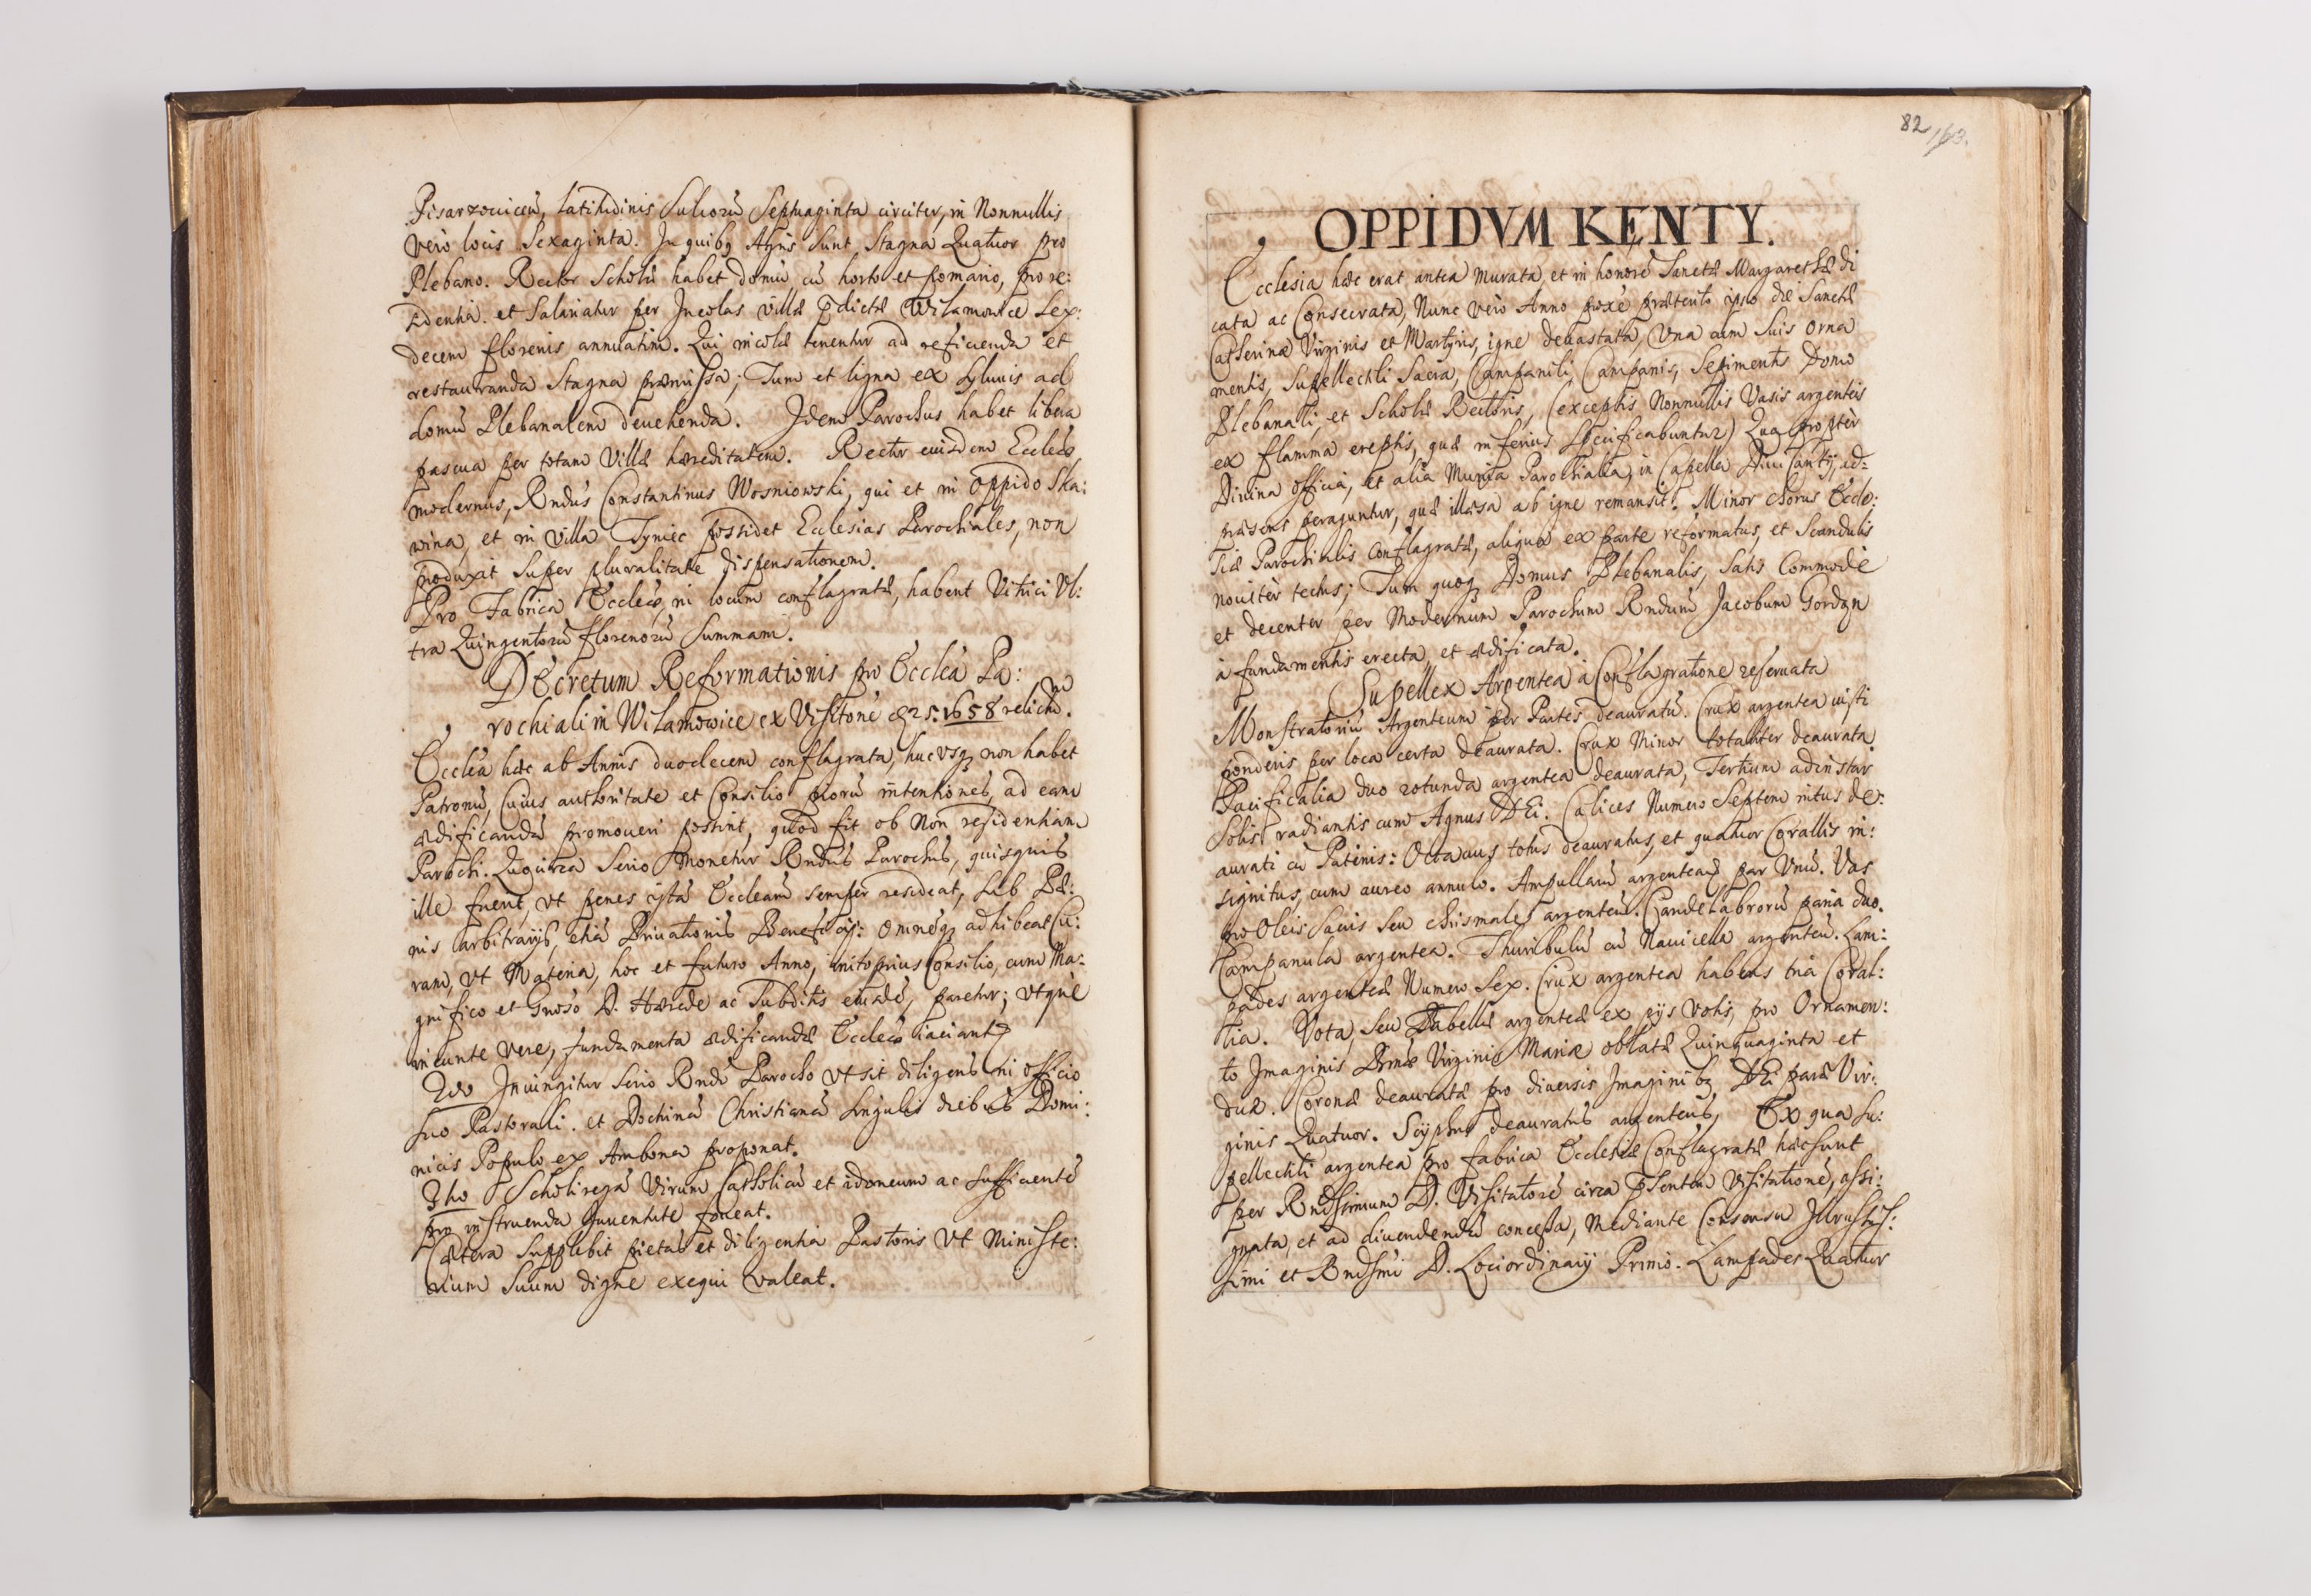 Pisarzouicen, latitudinis Sulcorū Septuaginta circiter, in Nonnullis
vero locis Sexaginta. In quibq Agris sunt Stagna Quatuor pro
Plebano. Rector Scholæ habet domū cū horto et pomario, pro re:
sidentia. et Salariatur per Incolas villæ p̄dictæ Wilamowice Sex:
decem florenis annuatim. Qui incolæ tenentur ad reficienda et
restauranda Stagna præmissa; Tum et ligna ex Syluis ad
domū Plebanalem deuehenda. Idem Parochus habet libera
pascua per totam Villæ hæreditatem. Rector eiusdem Eccleæ
modernus, Rndus Constantinus Wosniowski, qui et in Oppido Ska:
wina, et in villa Tyniec possidet Ecclesias Parochiales, non
produxit super pluralitate dispensationem.
Pro Fabrica Eccleæ, in locum conflagratæ, habent Vitrici Vl:
tra Quingentorū florenorū Summam.
Decretum Reformationis pro Ecclea Pa:
rochiali in Wilamowice ex Visitone 1658 relictū.
Ecclea hæc ab Annis duodecem conflagrata, hucvsq non habet
Patronū, Cuius authoritate et Consilio piorū intentiones, ad eam
ædificandā promoueri possint, quod fit ob Non residentiam
Parochi. Quocirca Serio Monetur Rndus Parochus, quisquis
ille fuerit, vt penes istā Eccleam semper resideat, sub Pæ:
nis arbitrarijs, etiā Priuationis Beneficij: Omneq adhibeat Cu:
ram, vt Materia, hoc et futuro Anno, inito prius Consilio, cum Ma:
gnifico et Gnoso D. Hærede ac Subditis eiusdē, paretur; vtque
ineunte vere, fundamenta ædificandæ Eccleæ iaciantur
2do Iniungitur serio Rndo Parocho vt sit diligens in officio
suo Pastorali. et Doctrinā Christianā singulis diebus Domi:
nicis Populo ex Ambona proponat.
3tio Scholiregā Virum Catholicū et idoneum ac sufficientē
pro instruenda Iuuentute foueat.
Cætera supplebit pietas et diligentia Pastoris vt Ministe:
rium Suum digne exequi valeat.
82 163.
OPPIDVM KENTY.
Ecclesia hæc erat antea Murata, et in honorē Sanctæ Margarethæ di
cata ac Consecrata, Nunc vero Anno proxē præterito ipso die Sanctæ
Catherinæ Virginis et Martyris, igne deuastata, Vna cum suis orna
mentis, Supellectili Sacra, Campanili, Campanis, Sepimentis Domo
Plebanali, et Scholæ Rectoris, (exceptis Nonnullis Vasis argenteis
ex flamma ereptis, quæ inferius specificabuntur) Qua propter
Diuina officia, et alia Munia Parochialia, in Capella Diui Cantij, ad-
præsens peraguntur, quæ illæsa ab igne remansit. Minor Chorus Eccle:
siæ Parochialis Conflagratæ, aliqua ex parte reformatus, et Scandulis
nouiter tectus; Tum quoq Domus Plebanalis, satis Commode
et decenter per Modernum Parochum Rndum Jacobum Gordzyn
à fundamentis erecta, et ædificata.
Supellex Argentea à Conflagratione reseruata
Monstratoriū Argenteum per Partes deauratū. Crux argentea iusti
ponderis per loca certa deaurata. Crux Minor totaliter deaurata
Pacificalia duo rotunda argentea deaurata, Tertium adinstar
Solis radiantis cum Agnus DEi. Calices Numero Septem intus de:
aurati cū Patinis: Octauus totus deauratus, et quatuor Corallis in:
signitus, cum aureo annulo. Ampullarū argentearū par Vnū. Vas
pro Oleis Sacris seu chrismale argenteū. Candelabrorū paria duo.
Campanula argentea. Thuribulū cū Nauicella argenteū. Lam:
pades argenteæ Numero Sex. Crux argentea habens tria Coral:
lia. Vota, seu Tabellæ argenteæ ex pijs votis, pro Ornamen:
to Imaginis Bmæ Virginis Mariæ oblatæ Quinquaginta et
duæ. Coronæ deauratæ pro diuersis Imaginibq DEi paræ Vir:
ginis Quatuor. Scyphus deauratus argenteus, Ex qua su:
pellectili argentea pro fabrica Ecclesiæ Conflagratæ hæc sunt
per Rndssimum D. Visitatorē circa p̄sentem visitationē, assi:
gnata, et ad diuendendū concessa, Mediante Consensu Illrustris:
simi et Rndsmi D. Loci ordinarij Primo. Lampades Quatuor